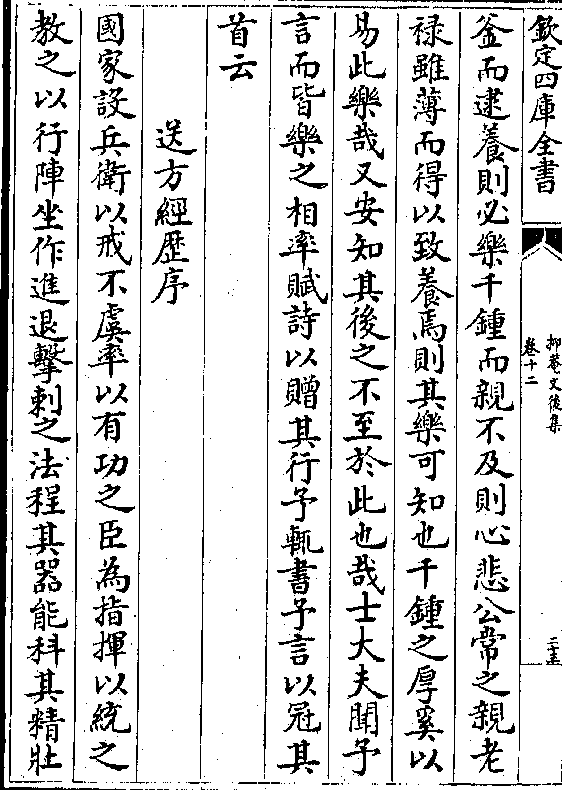 欽定四庫全書
抑菴文後集
卷十二
二十五
釜而逮養則必樂千鍾而親不及則心悲公常之親老
祿雖薄而得以致養焉則其樂可知也千鍾之厚奚以
易此樂哉又安知其後之不至於此也哉士大夫聞予
言而皆樂之相率賦詩以贈其行予輒書予言以冠其
首云
送方經歴序
國家設兵衛以戒不虞率以有功之臣為指揮以統之
教之以行陣坐作進退擊刺之法程其器能科其精壯